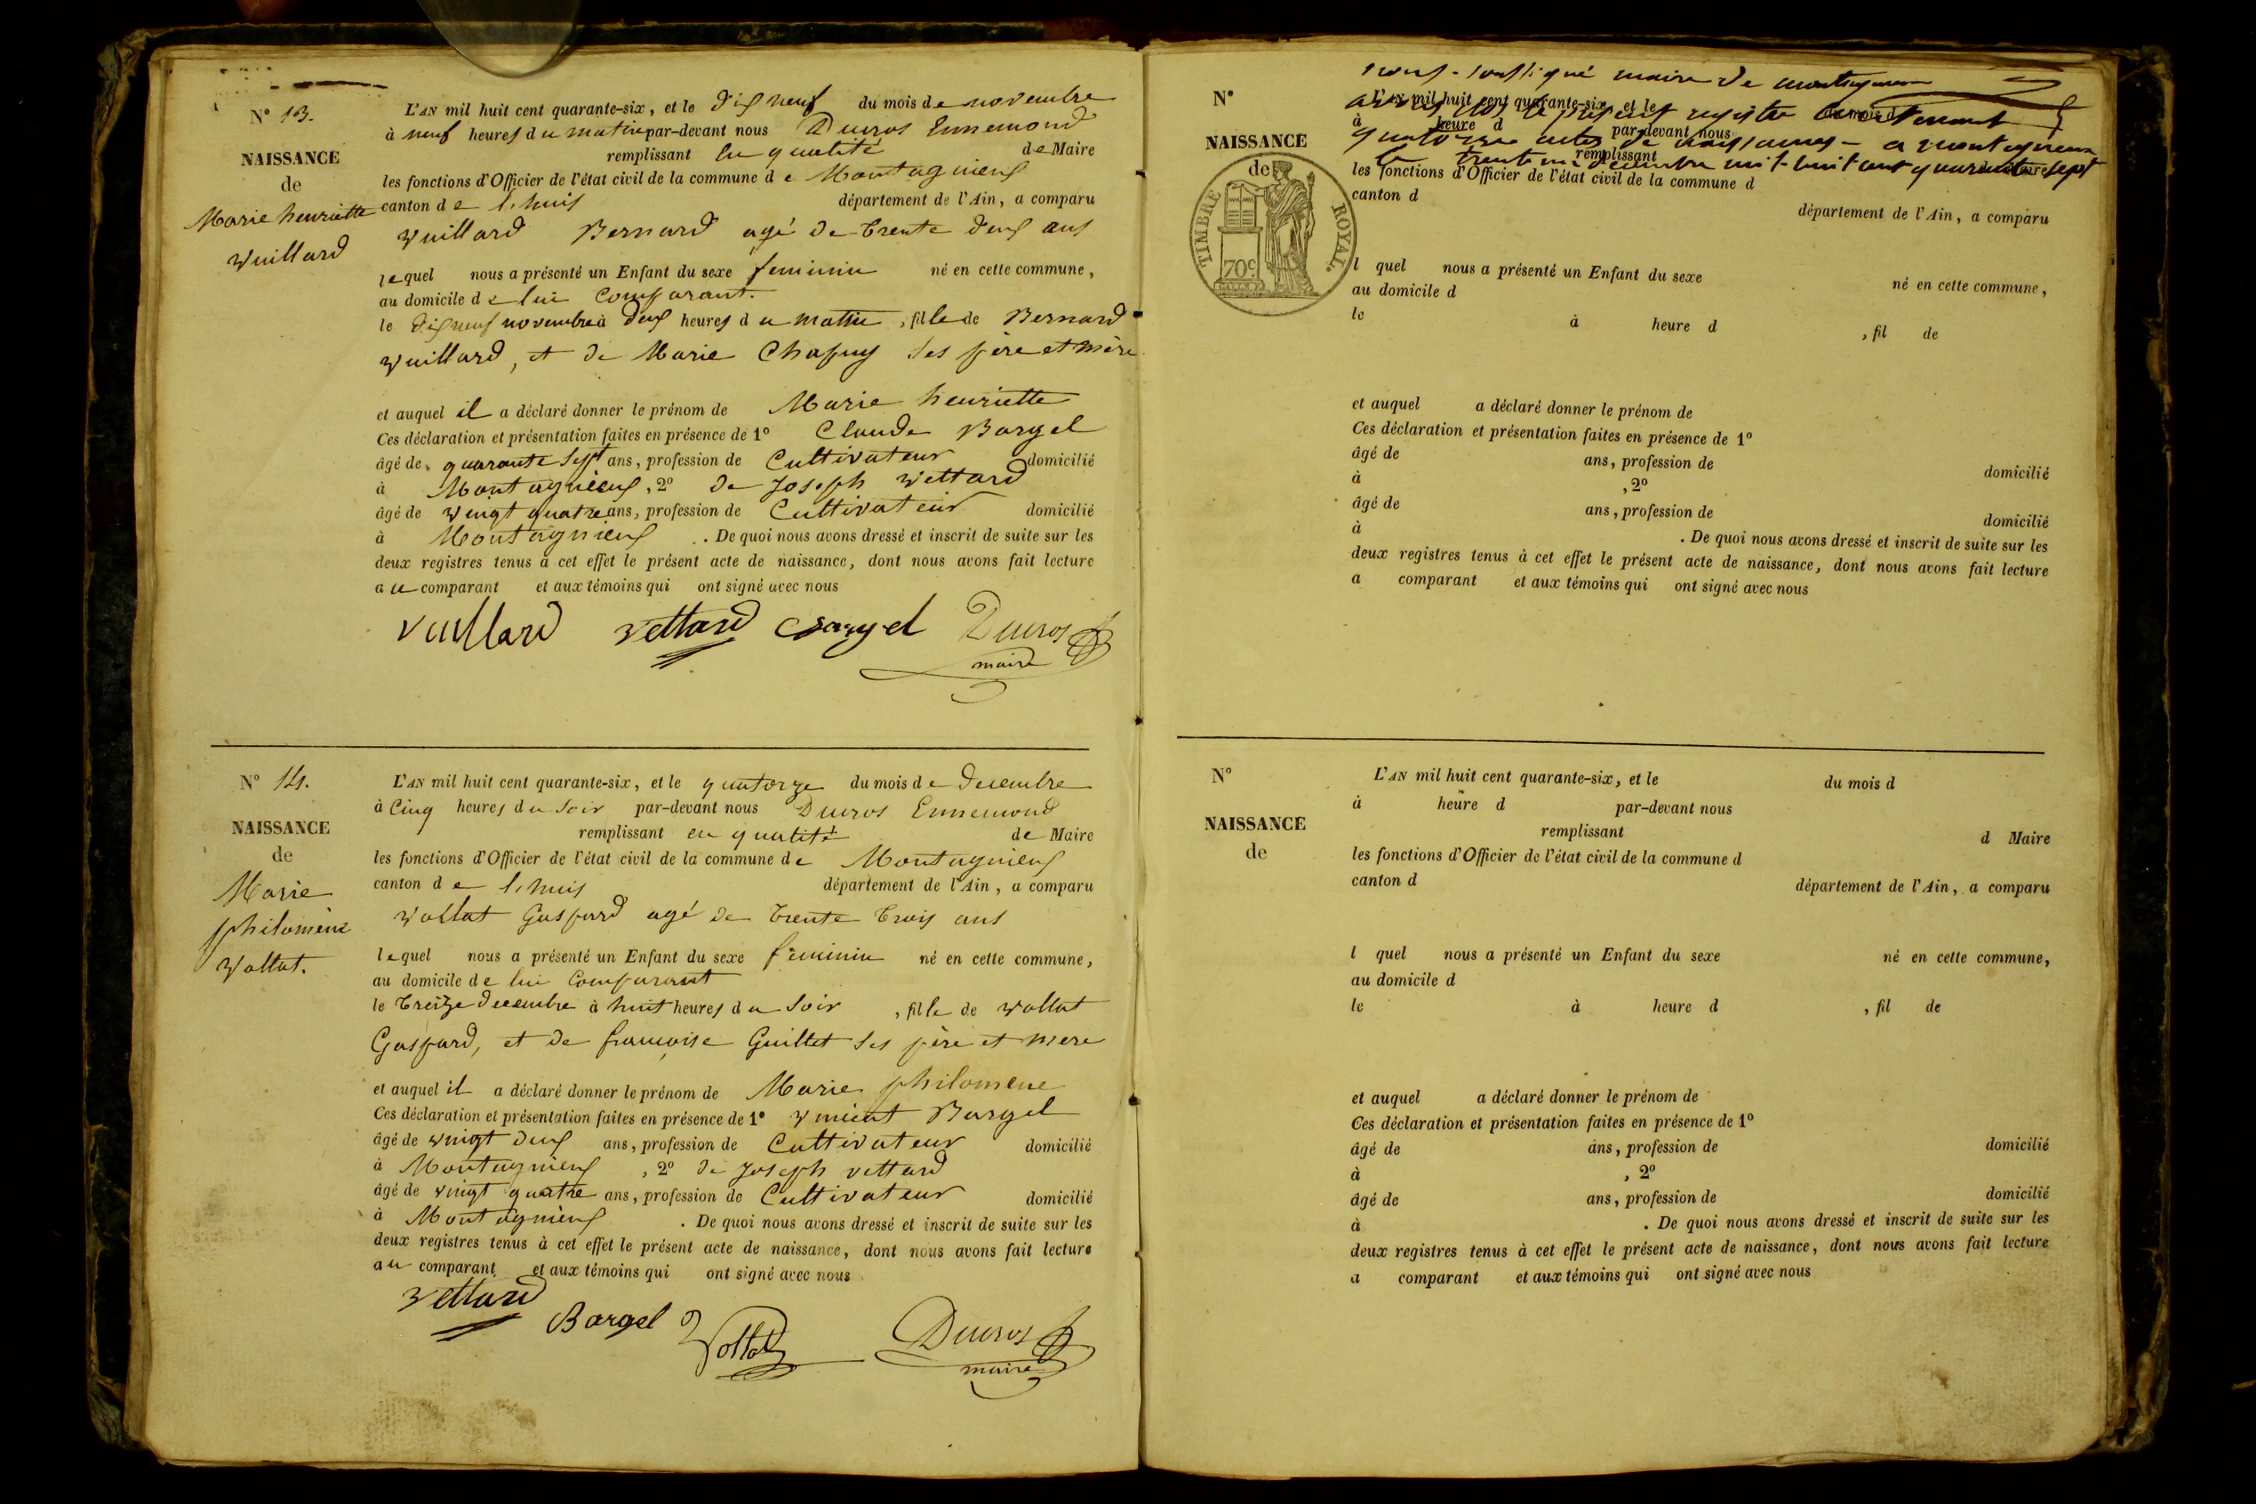 N° 13.
NAISSANCE
de
Marie henriette
vuillard
L'AN mil huit cent quarante-six, et le dix neuf du mois de novembre
à neuf heures du matin par-devant nous Ducros Ennemond
remplissant en qualité de Maire
les fonctions d'Officier de l'état civil de la commune de Montagnieux
canton de l'huis département de l'Ain, a comparu
vuillard Bernard agé de trente deux ans
lequel nous a présenté un Enfant du sexe feminin né en cette commune,
au domicile de lui comparant.
le dix neuf novembre à deux heures du matin, fille de Bernard
vuillard, et de Marie Chapuy ses père et mère
et auquel il a déclaré donner le prénom de Marie henriette
Ces déclaration et présentation faites en présence de 1° Claude Bargel
âgé de quarante sept ans, profession de Cultivateur domicilié
à Montagnieux, 2° de Joseph vettard
âgé de vingt quatre ans, profession de Cultivateur domicilié
à Montagnieux. De quoi nous avons dressé et inscrit de suite sur les
deux registres tenus à cet effet le présent acte de naissance, dont nous avons fait lecture
au comparant et aux témoins qui ont signé avec nous
vuillard vettard Bargel Ducros
maire
N° 14.
NAISSANCE
de
Marie
philomène
Vollat.
L'AN mil huit cent quarante-six, et le quatorze du mois de decembre
à Cinq heures du soir par-devant nous Ducros Ennemond
remplissant en qualité de Maire
les fonctions d'Officier de l'état civil de la commune de Montagnieux
canton de l'huis département de l'Ain, a comparu
Vollat Gaspard agé de trente trois ans
lequel nous a présenté un Enfant du sexe féminin né en cette commune,
au domicile de lui Comparant
le treize decembre à huit heures du soir, fille de Vollat
Gaspard, et de françoise Guillet ses père et mere
et auquel il a déclaré donner le prénom de Marie philomene
Ces déclaration et présentation faites en présence de 1° vincent Bargel
âgé de vingt deux ans, profession de Cultivateur domicilié
à Montagnieux, 2° de Joseph vettard
âgé de vingt quatre ans, profession de Cultivateur domicilié
à Montagnieux. De quoi nous avons dressé et inscrit de suite sur les
deux registres tenus à cet effet le présent acte de naissance, dont nous avons fait lecture
au comparant et aux témoins qui ont signé avec nous
vettard
Bargel Vollat Ducros
maire
nous soussigné maire de montagnieux
avons clos le present registre contenant
quatorze actes de naissances a montagnieux
le trente un decembre mil huit cent quarante sept
N°
NAISSANCE
de
TIMBRE ROYAL.
70c
L'AN mil huit cent quarante-six, et le du mois d
à heure d par-devant nous
remplissant d Maire
les fonctions d'Officier de l'état civil de la commune d
canton d département de l'Ain, a comparu
l quel nous a présenté un Enfant du sexe né en cette commune,
au domicile d
le à heure d , fil de
et auquel a déclaré donner le prénom de
Ces déclaration et présentation faites en présence de 1°
âgé de ans, profession de domicilié
à , 2°
âgé de ans, profession de domicilié
à . De quoi nous avons dressé et inscrit de suite sur les
deux registres tenus à cet effet le présent acte de naissance, dont nous avons fait lecture
a comparant et aux témoins qui ont signé avec nous
N°
NAISSANCE
de
L'AN mil huit cent quarante-six, et le du mois d
à heure d par-devant nous
remplissant d Maire
les fonctions d'Officier de l'état civil de la commune d
canton d département de l'Ain, a comparu
l quel nous a présenté un Enfant du sexe né en cette commune,
au domicile d
le à heure d , fil de
et auquel a déclaré donner le prénom de
Ces déclaration et présentation faites en présence de 1°
âgé de ans, profession de domicilié
à , 2°
âgé de ans, profession de domicilié
à . De quoi nous avons dressé et inscrit de suite sur les
deux registres tenus à cet effet le présent acte de naissance, dont nous avons fait lecture
a comparant et aux témoins qui ont signé avec nous